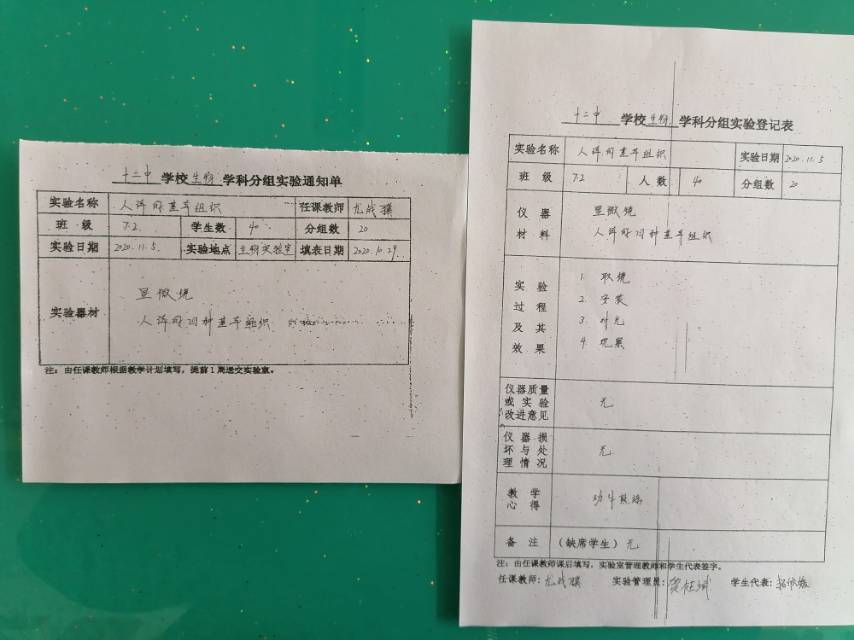 十二中 学校 生物 学科分组实验通知单
实验名称 人体的基本组织 任课教师
班 级 7.2 学生数 40 分组数 20
实验日期 2020.11.5. 实验地点 生物实验室 填表日期 2020.10.29.
实验器材 显微镜
人体的四种基本组织
注：由任课教师根据教学计划填写，提前1周送交实验室。
十二中 学校 生物 学科分组实验登记表
实验名称 人体的基本组织 实验日期 2020.11.5
班 级 7.2 人 数 40 分组数 20
仪 器 显微镜
材 料 人体的四种基本组织
实 验 1. 取镜
过 程 2. 安装
及 其 3. 对光
效 果 4. 观察
仪器质量
或 实 验 无
改进意见
仪 器 损
坏 与 处 无
理 情 况
教 学
心 得
备 注 （缺席学生）无
注：由任课教师课后填写，实验室管理教师和学生代表签字。
任课教师: 实验管理员: 学生代表: